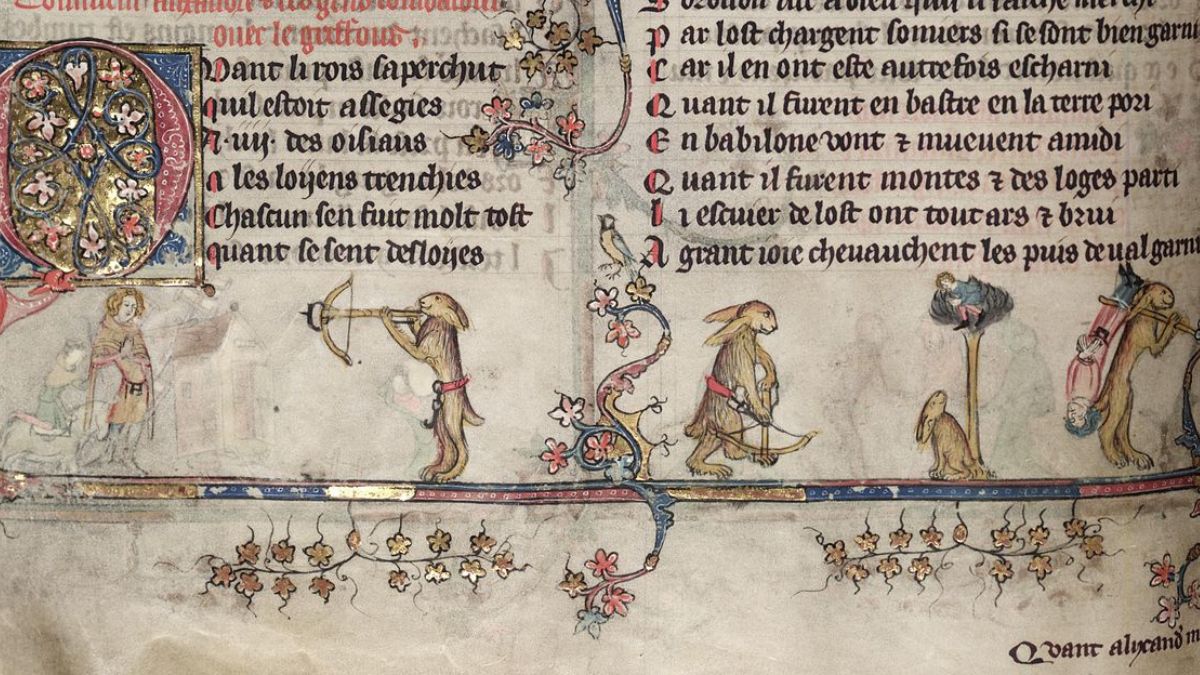 ouer le griffons.
Quant li rois saperchut
quil estoit assegies
A .uij. des oisiaus
les loijens trenchies
Chascun sen fuit molt tost
quant se sent desloijes
Par lost chargent somiers si se sont bien garni
Car il en ont este autrefois escharni
Quant il furent en bastre en la terre pori
En babilone vont ⁊ mueuent amidi
Quant il furent montes ⁊ des loges parti
Li escuier de lost ont tout ars ⁊ brui
A grant ioie cheuauchent les puis de ual garni
Quant alixand'